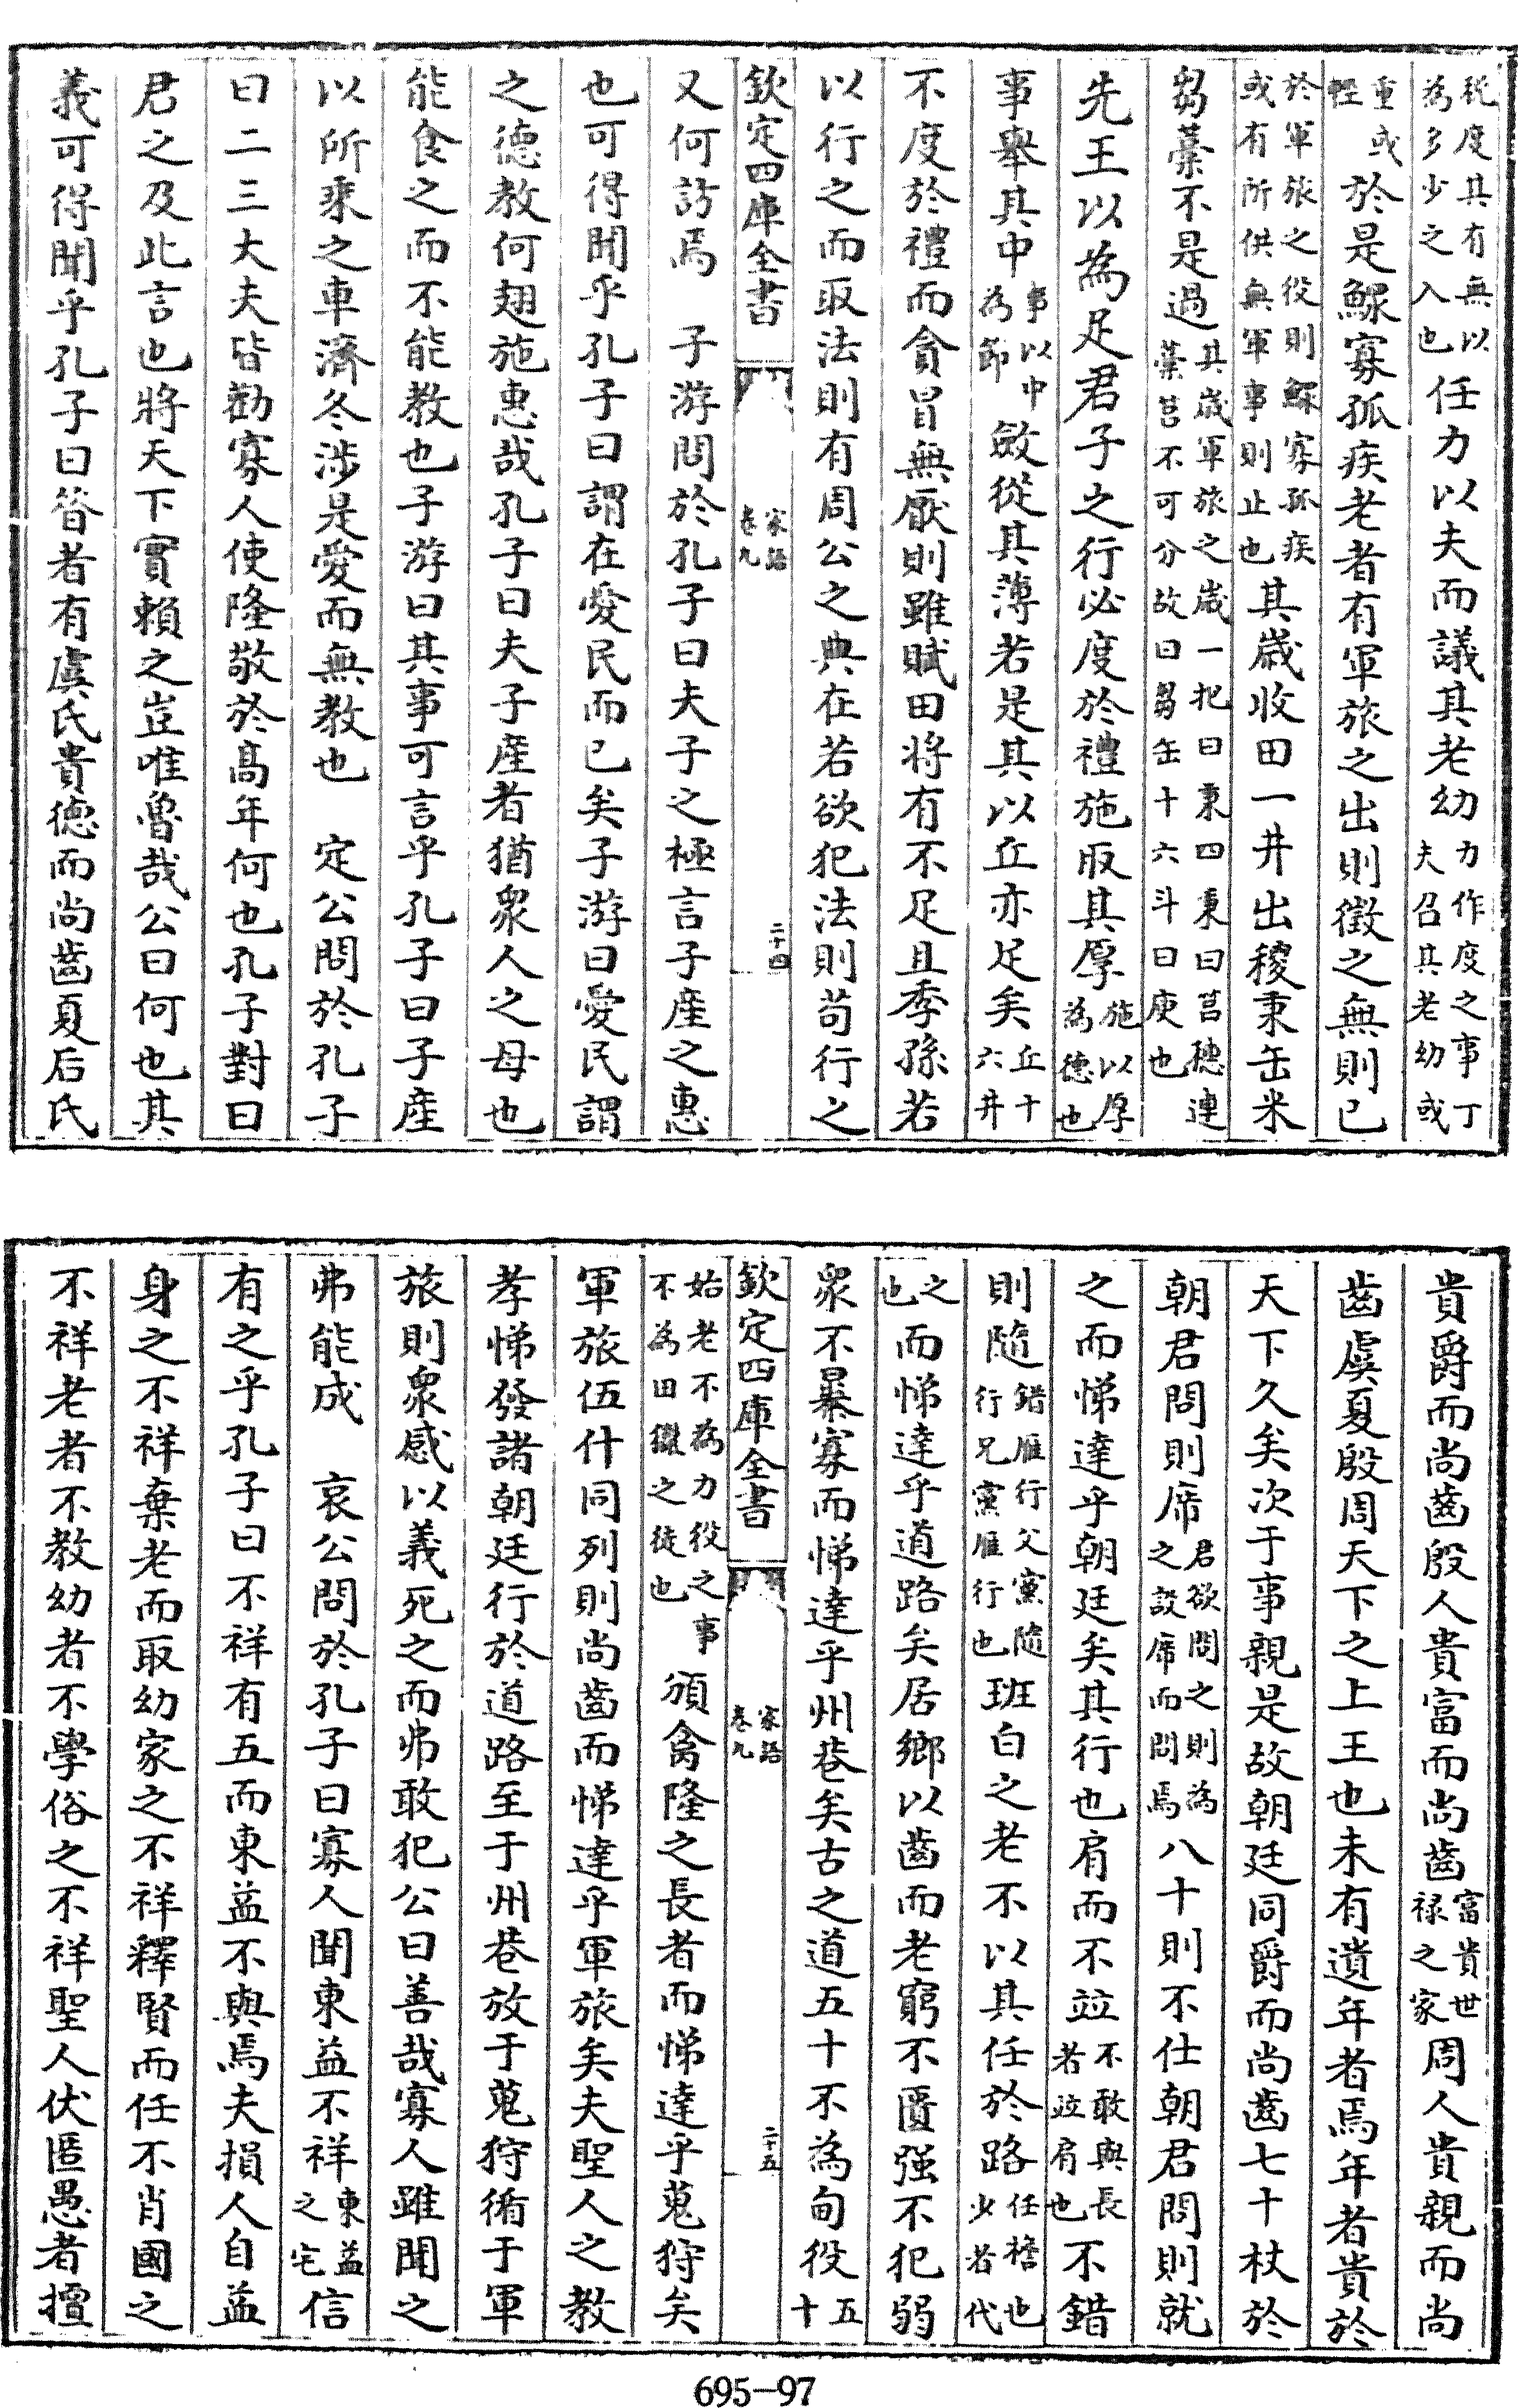 税度其有無以為多少之入也任力以夫而議其老幼力作度之事丁夫召其老幼或
重或輕於是鰥寡孤疾老者有軍旅之出則徴之無則已
於軍旅之役則鰥寡孤疾或有所供無軍事則止也其歳收田一井出稯秉缶米
芻藁不是過其歳軍旅之歳一把曰秉四秉曰筥穗連藁筥不可分故曰芻缶十六斗曰庾也
先王以為足君子之行必度於禮施取其厚施以厚為德也
事舉其中事以中為節斂從其薄若是其以丘亦足矣丘十六井
不度於禮而貪冒無厭則雖賦田将有不足且季孫若
以行之而取法則有周公之典在若欲犯法則苟行之
欽定四庫全書 家語卷九 二十四
又何訪焉 子游問於孔子曰夫子之極言子產之惠
也可得聞乎孔子曰謂在愛民而已矣子游曰愛民謂
之德教何翅施惠哉孔子曰夫子産者猶衆人之母也
能食之而不能教也子游曰其事可言乎孔子曰子産
以所乘之車濟冬涉是愛而無教也 定公問於孔子
曰二三大夫皆勸寡人使隆敬於髙年何也孔子對曰
君之及此言也將天下實賴之豈唯魯哉公曰何也其
義可得聞乎孔子曰昔者有虞氏貴德而尚齒夏后氏
貴爵而尚齒殷人貴富而尚齒富貴世禄之家周人貴親而尚
齒虞夏殷周天下之上王也未有遺年者焉年者貴於
天下久矣次于事親是故朝廷同爵而尚齒七十杖於
朝君問則席君欲問之則為之設席而問焉八十則不仕朝君問則就
之而悌達乎朝廷矣其行也肩而不竝不敢與長者竝肩也不錯
則隨錯雁行父黨隨行兄黨雁行也班白之老不以其任於路任擔也少者代
之也而悌達乎道路矣居鄉以齒而老窮不匱强不犯弱
衆不暴寡而悌達乎州巷矣古之道五十不為甸役五十
欽定四庫全書 家語卷九 二十五
始老不為力役之事不為田獵之徒也頒禽隆之長者而悌達乎蒐狩矣
軍旅伍什同列則尚齒而悌達乎軍旅矣夫聖人之教
孝悌發諸朝廷行於道路至于州巷放于蒐狩循于軍
旅則衆感以義死之而弗敢犯公曰善哉寡人雖聞之
弗能成 哀公問於孔子曰寡人聞東益不祥東益之宅信
有之乎孔子曰不祥有五而東益不與焉夫損人自益
身之不祥棄老而取幼家之不祥釋賢而任不肖國之
不祥老者不教幼者不學俗之不祥聖人伏匿愚者擅
695-97